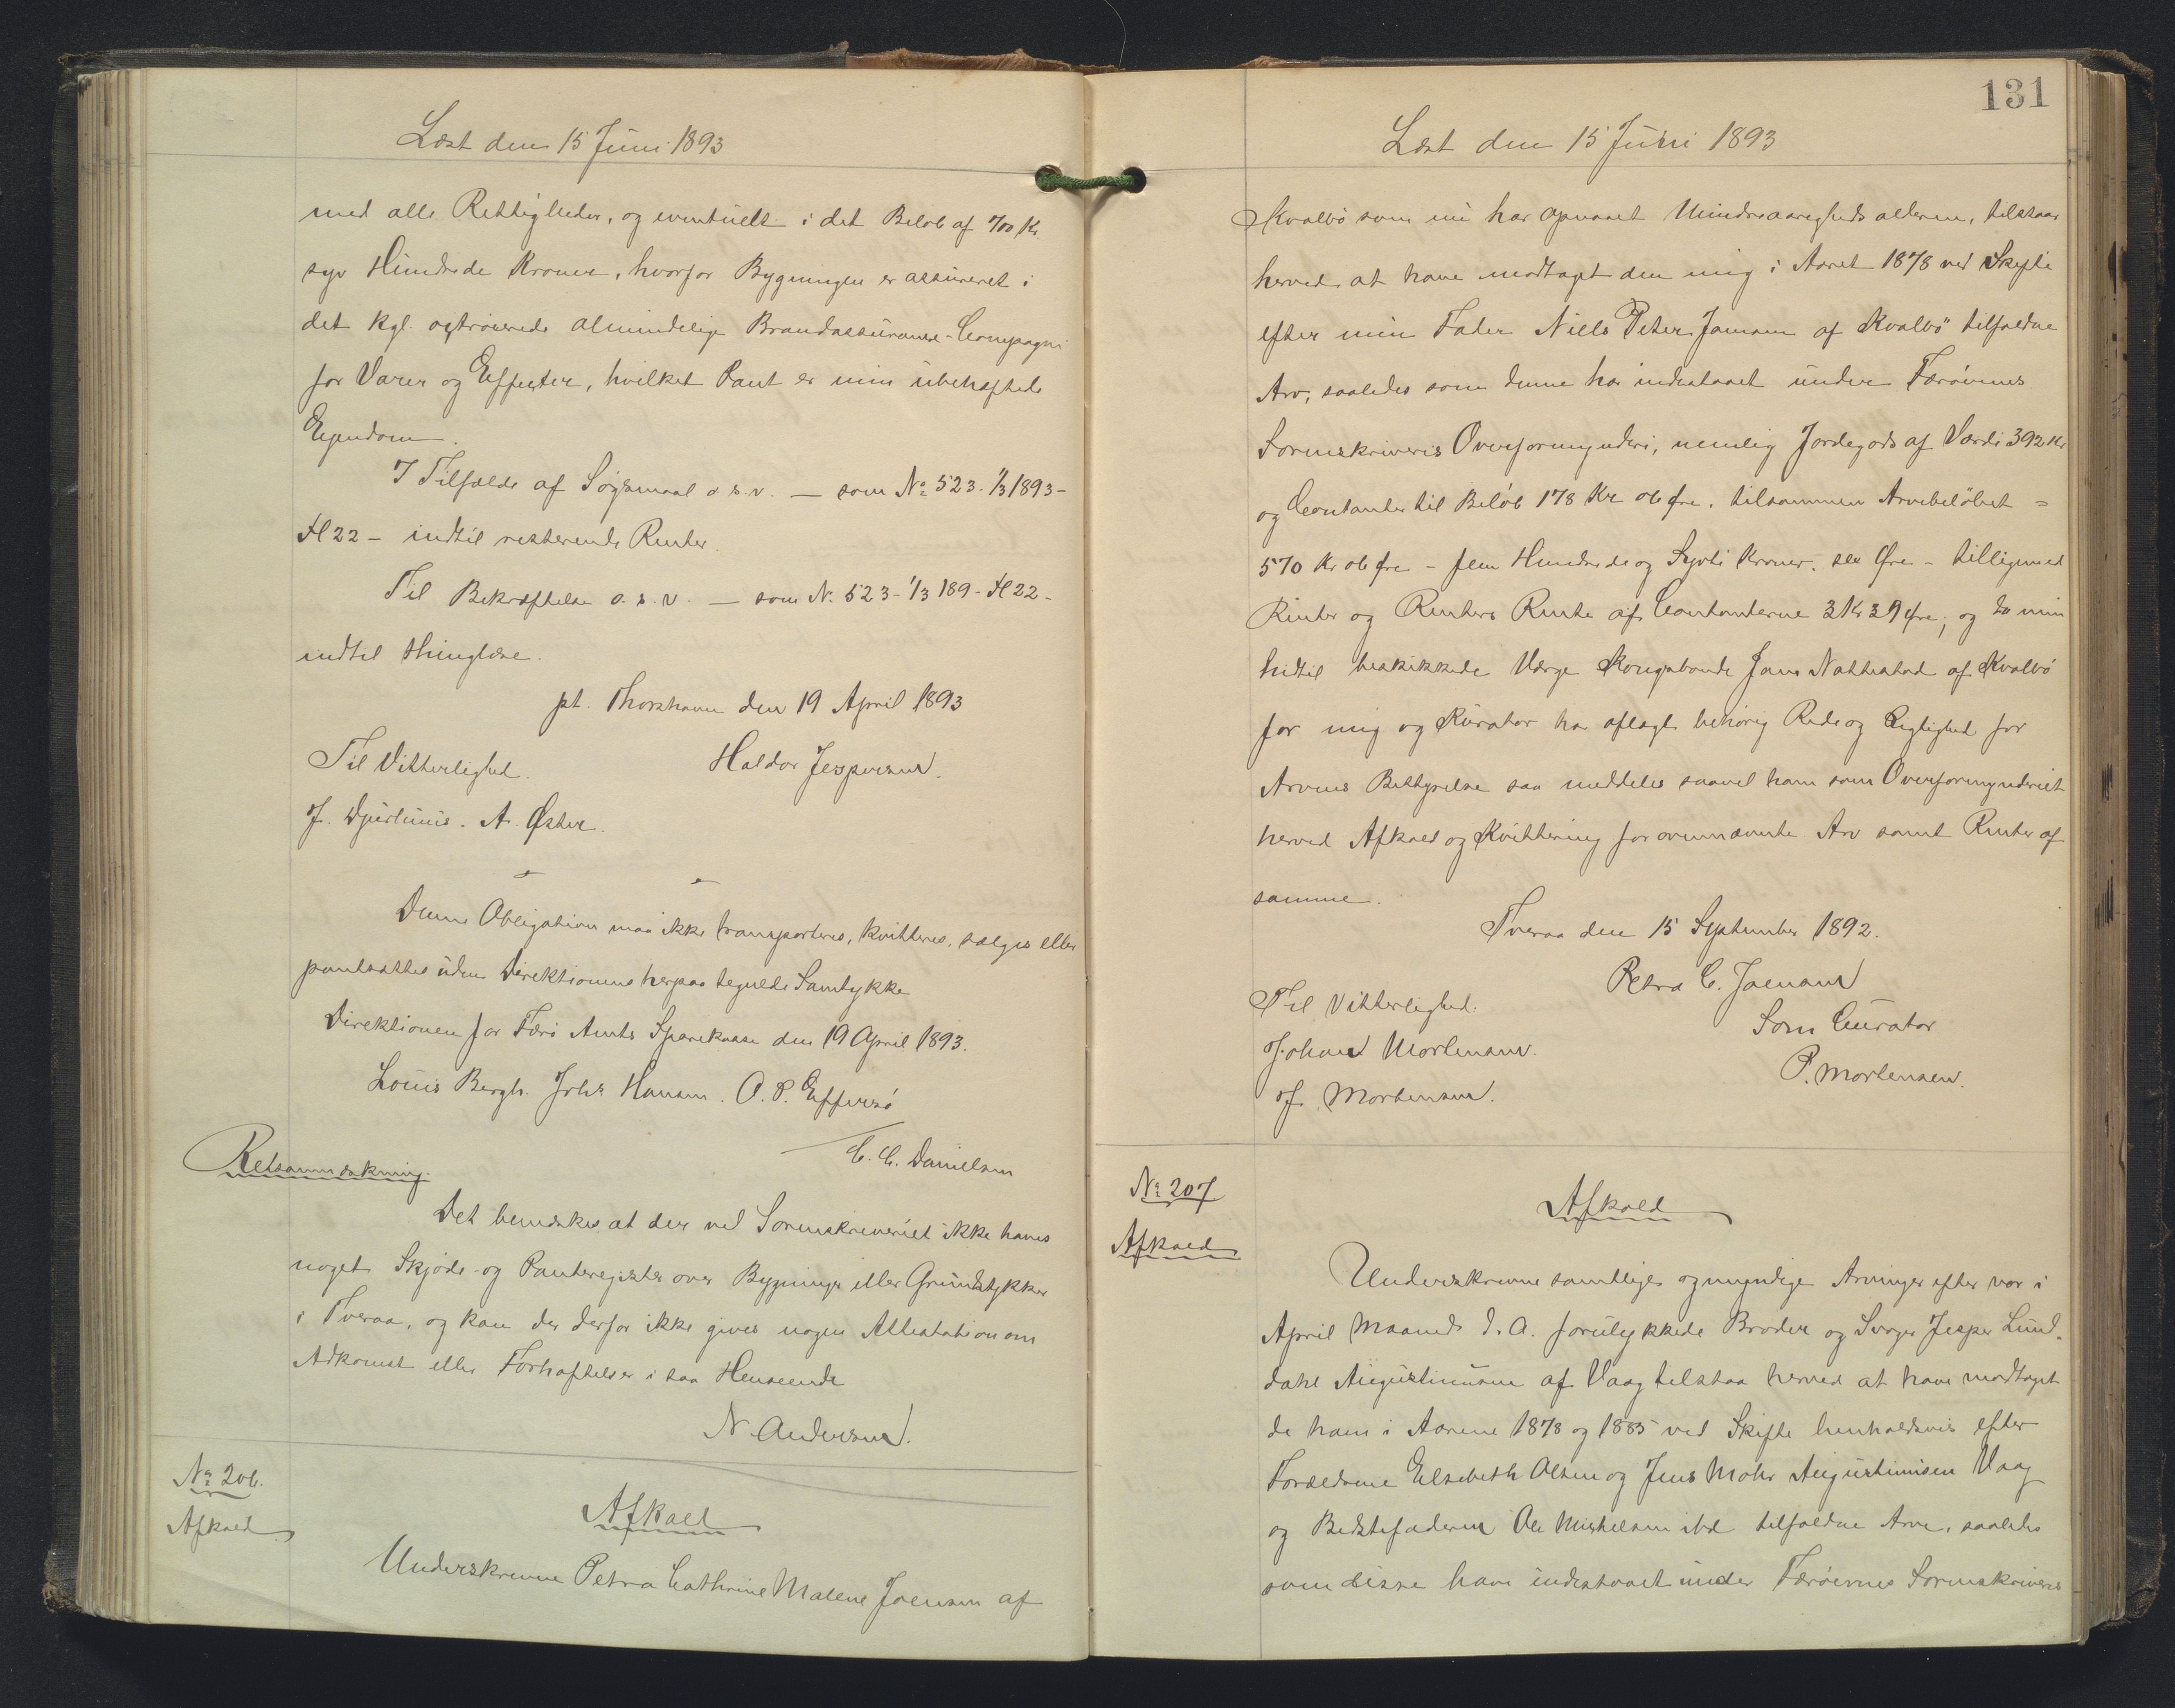 Læst den 15 Juni 1893
med alle Rettigheder, og eventuelt i det Beløb af 700 Kr.
syv Hundrede Kroner, hvorfor Bygningen er assureret i
det kgl. octroierede almindelige Brandassurance-Compagni
for Varer og Effecter, hvilket Pant er min ubehæftede
Ejendom.
I Tilfælde af Søgsmaal o.s.v. — som No 523. 1/3 1893 -
H 22 - indtil resterende Renter.
Til Bekræftelse o.s.v. — som N. 523 - 1/3 189 - H 22 -
indtil thinglæse.
pt. Thorshavn den 19 April 1893
Til Vitterlighed. Haldor Jespersen.
J. Djurhuus. A. Øster.
Denne Obligation maa ikke transporteres, kvitteres, sælges eller
pantsættes uden Direktionens herpaa tegnede Samtykke
Direktionen for Færø Amts Sparekasse den 19 April 1893.
Louis Bergh. Johs Hansen. O. P. Effersø
C. C. Danielsen
Retsanmærkning.
Det bemærkes at der ved Sorenskriveriet ikke haves
noget Skjøde- og Panteregister over Bygninger eller Grundstykker
i Tveraa, og kan der derfor ikke gives nogen Attestation om
Adkomst eller Forhæftelser i saa Henseende
N. Andersen.
No 206.
Afkald
Afkald
Underskrevne Petra Cathrine Malene Joensen af
131
Læst den 15 Juni 1893
Kvalbø som nu har opnaaet Mindreaarigheds alderen, tilstaar
herved at have modtaget den mig i Aaret 1878 ved Skifte
efter min Fader Niels Peter Joensen af Kvalbø tilfaldne
Arv, saaledes som denne har indestaaet under Færøernes
Sorenskriveris Overformynderi, nemlig Jordegods af Værdi 392 Kr
og Contanter til Beløb 178 Kr 06 Øre, tilsammen Arvebeløbet =
570 Kr 06 Øre - fem Hundrede og Syvti Kroner, sex Øre - tilligemed
Renter og Renters Rente af Contanterne 3 Kr 39 Øre; og da min
hidtil beskikkede Værge Kongsbonde Jens Nattestad af Kvalbø
for mig og Kurator har aflagt behørig Rede og Rigtighed for
Arvens Bestyrelse saa meddeles saavel ham som Overformynderiet
herved Afkald og Kvittering for ovennævnte Arv samt Renter af
samme.
Tveraa den 15 September 1892.
Petra C. Joensen
Til Vitterlighed. Som Curator
Johan Mortensen. P. Mortensen.
J. Mortensen.
No 207
Afkald
Afkald
Underskrevne samtlige og myndige Arvinger efter vor i
April Maaned d. A. forulykkede Broder og Svoger Jesper Lund-
dahl Augustinussen af Vaag tilstaa herved at have modtaget
de ham i Aarene 1878 og 1885 ved Skifte henholdsvis efter
Forældrene Elsebeth Olsen og Jens Mohr Augustinusen Vaag
og Bedstefaderen Ole Mikkelsen ibd tilfaldne Arve, saaledes
som disse have indestaaet under Færøernes Sorenskriveris